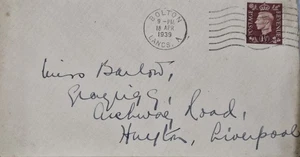 BOLTON
9 - PM
18 APR
1939
LANCS. A
Miss Barlow,
Archway Road,
Huyton, Liverpool